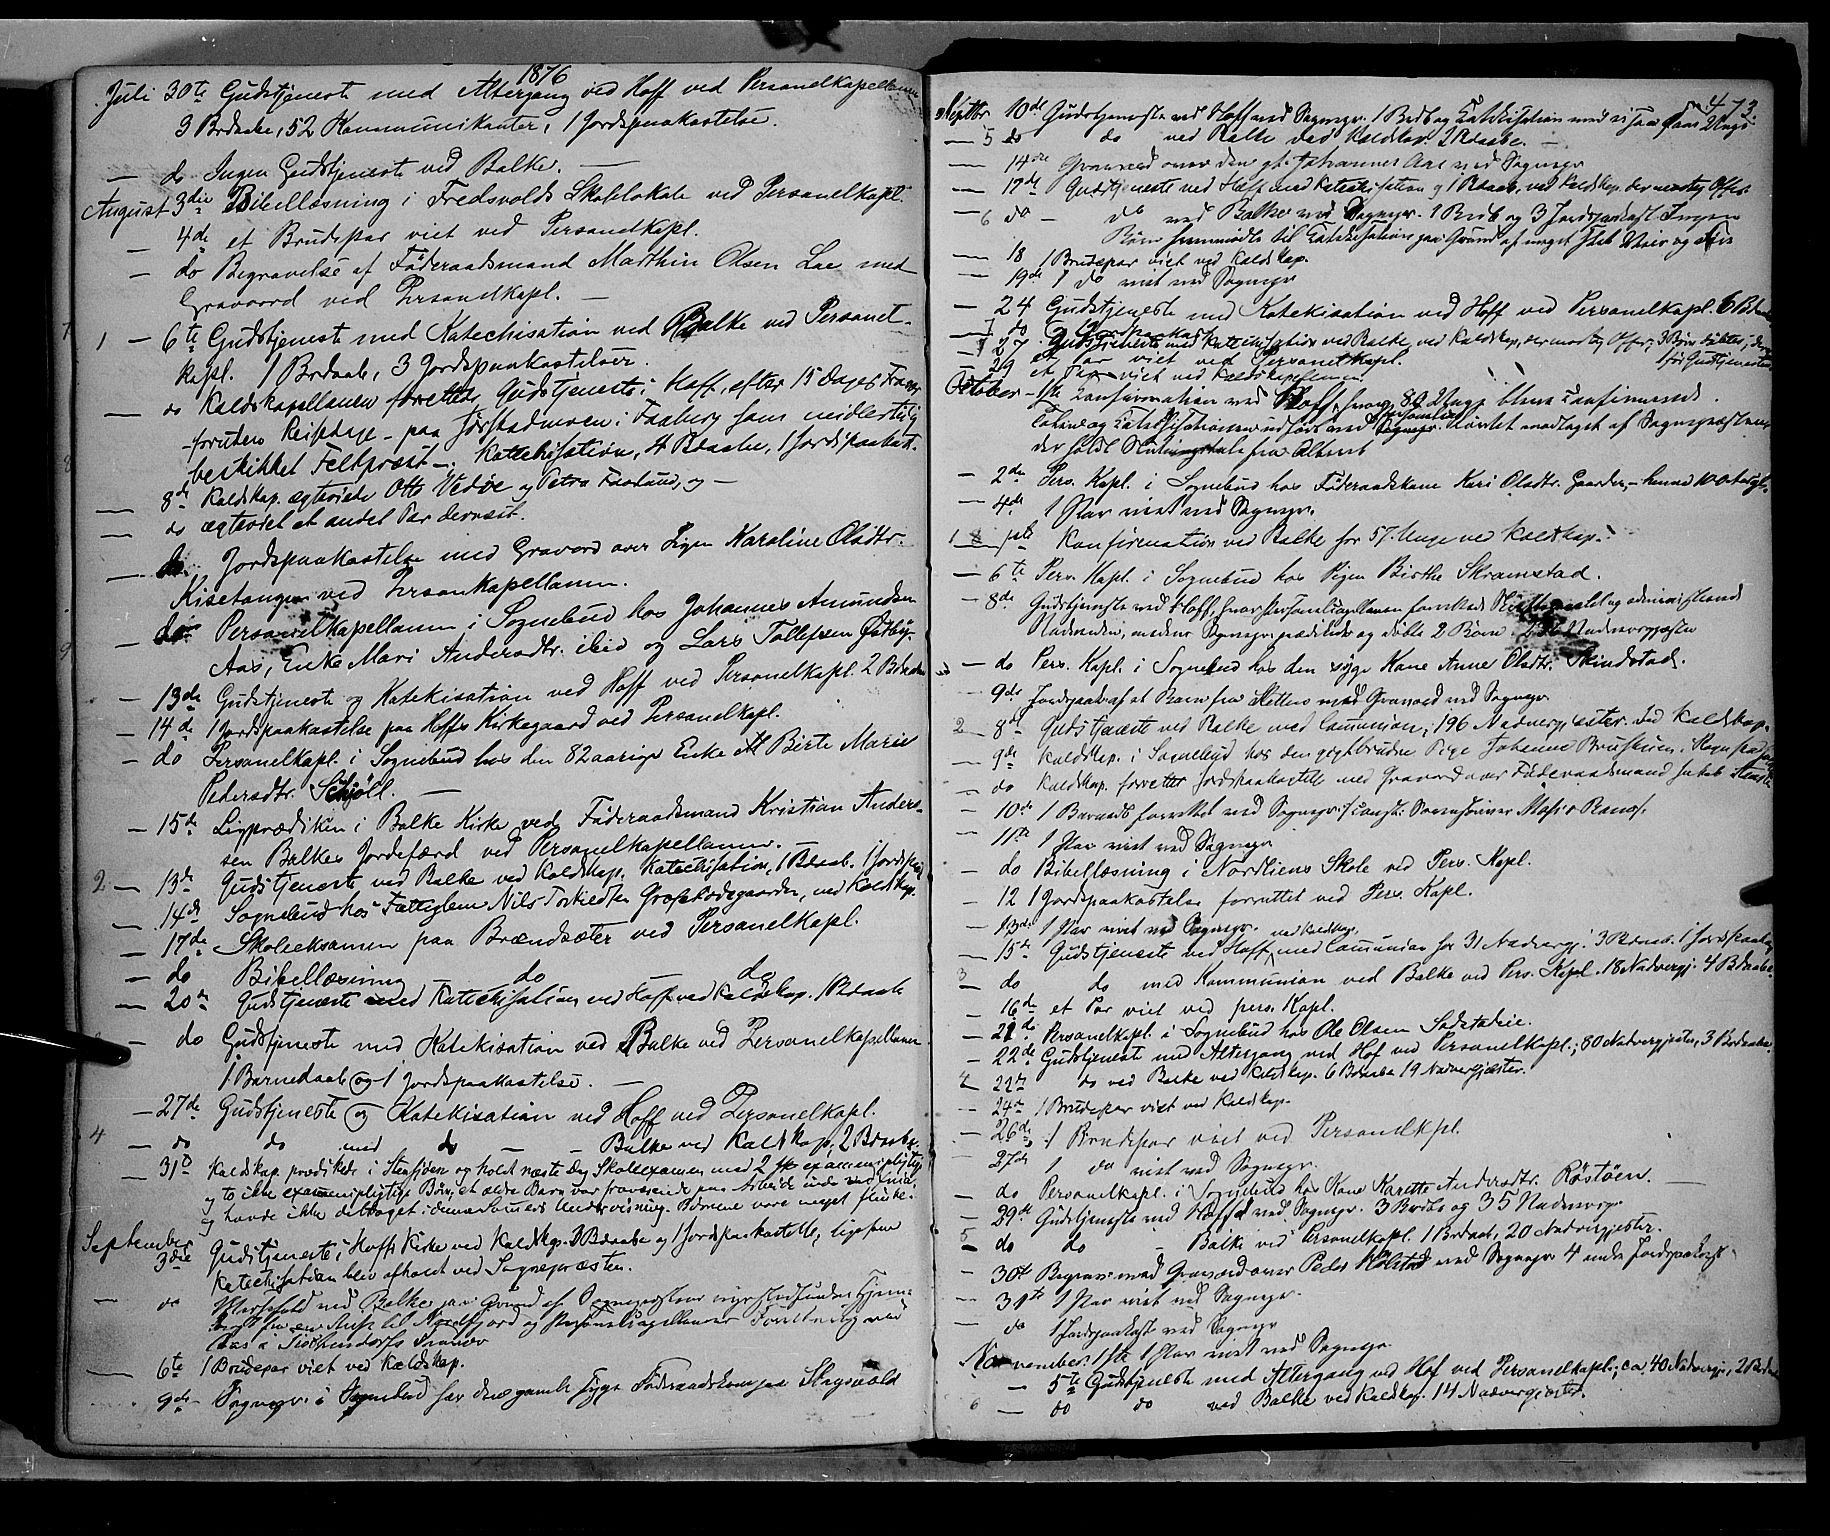 1876
Juli 30te Gudstjeneste med Altergang ved Hoff ved Personelkapellanen
3 Brdaabe, 52 Kommunikanter, 1 Jordspaakastelse.
— do Ingen Gudstjeneste ved Balke. —
August 3die Bibellæsning i Fredsvolds Skolelokale ved Personelkapl.
— 4de et Brudepar viet ved Personelkapl.
— do Begravelse af Föderaadsmand Marthin Olsen Lae med
Gravoord ved Personelkapl. —
1 — 6te Gudstjeneste med Katechisation ved Balke ved Personel-
kapl. 1 Brdaab, 3 Jordspaakastelser.
— do Kaldskapellanen forrettede Gudstjeneste i Hoff, efter 15 Dages Fravær
foruden Reisedage – paa Jørstadmoen i Faaberg som midlertidig
beskikket Feltpræst –. Katechisation, 4 Bdaabe, 1 Jordspaakast.
— 8de Kaldskap. ægteviede Otto Vedöe og Petra Faalund, og —
— do ægteviet et andet Par dernæst.
— do Jordspaakastelse med Gravord over Pigen Karoline Olsdtr.
Kisetangen ved Personkapellanen.
— do Personelkapellanen i Sognebud hos Johannes Amundsen
Aas, Enke Mari Andersdtr. ibid og Lars Tollefsen Østby.
— 13de Gudstjeneste og Katekisation ved Hoff ved Personelkapl. 2 Bdaabe
— 14de 1 Jordspaakastelse paa Hoffs Kirkegaard ved Personelkapl.
— do Personelkapl. i Sognebud hos den 82 aarige Enke Birte Marie
Pedersdtr. Schjöll. —
— 15de Ligprædiken i Balke Kirke ved Föderaadsmand Kristian Anders-
sen Balkes Jordefærd ved Personelkapellanen. —
2 — 13de Gudstjeneste ved Balke ved Kaldskap. Katechisation, 1 Bdaab. 1 Jordspk
— 14de Sognebud hos Fattiglem Nils Torkildsen ved Kaldskap.
— 17de Skoleeksamen paa Brændsæter ved Personelkapl.
— do Bibellæsning do do
— 20de Gudstjeneste med Katechisation ved Hoff ved Kaldskap. 1 Bdaab
do Gudstjeneste med Katekisation ved Balke ved Personelkapellanen.
1 Barnedaab og 1 Jordspaakastelse. —
— 27de Gudstjeneste og Katekisation ved Hoff ved Personelkapl.
4 — do do med do — — Balke ved Kaldskap, 2 Bdaabe.
— 31te Kaldskap. prædikede i Stenfjden og holdt næste Dag Skoleexamen med 2 examenspligtige
og to ikke examenspligtige Børn, et ældre Barn var fraværende paa Arbeide
og havde ikke deltaget i Undervisning. Børnene vare meget flinke.
September
3die Gudstjeneste i Hoffs Kirke ved Kaldskp. 2 Bdaabe og 1 Jordspaakastelse, ligesom
Katechisation blev afholdt ved Sognepræsten.
— do ved Balke paa Grund af Sognepræstens
Reise til Nordfjord og Personelkapellanens Forretning ved
— 6te 1 Brudepar viet ved Kaldskap.
— 9de Sognepr. i Sognebud hos den gamle syge Föderaadskone paa Skogsvold
473.
Septbr 10de Gudstjeneste ved Hoff ved Sognepr. 1 Brdb og Katekisation
— 5 do do ved Balke ved Kaldskap. 2 Bdaabe. —
— 14de Gravord over den gl. Johannes Aas ved Sognepr.
— 17de Gudstjeneste ved Hoff med Katechisation og 1 Bdaab, ved Kaldskap. der modtog Offer
— 6 do — do ved Balke ved Sognepr. 1 Brdb og 3 Jordspaakast. Ingen
Børn fremmødte til Katechisation paa Grund af meget slet Veir og Före
— 18 1 Brudepar viet ved Kaldskap.
— 19de 1 do viet ved Sognepr.
— 24 Gudstjeneste med Katekisation ved Hoff ved Personelkapl. 6 Bdaabe
— 7 do Gudstjeneste med Katechisation ved Balke, ved Kaldskap, der modtog Offer, 3 Børn døbtes,
1 Jordspaakast.
— 27 et Par viet ved Personelkapl. 1 før Gudstjenesten
— 29 et Par viet ved Kaldskapellanen.
October — 1ste Konfirmation ved Hoff, hvor 80 Unge bleve Confirmerede.
modtaget af Sognepræsten
der holdt Slutningstale fra Alteret
— 2de Pers. Kapl. i Sognebud hos Föderaadskone Kari Olsdtr. Gaarder,
— 4de 1 Par viet ved Sognepr.
1 — 1ste Konfirmation ved Balke for 57 Unge ved Kaldskap.
— 6te Pers. Kapl. i Sognebud hos Pigen Birthe Skramstad.
— 8de Gudstjeneste ved Hoff, hvor Personelkapellanen forrettede Skriftemaalet og administrerede
Nadverden, medens Sognepr. prædikede og døbte 2 Børn. Nadvergjæster
— do Pers. Kapl. i Sognebud hos den syge Kone Anne Olsdtr. Skindstad.
— 9de Jordspaak. af et Barn fra Sletten med Gravord ved Sognepr.
2 — 8de Gudstjæneste ved Balke med Communion, 196 Nadvergjæster. ved Kaldskap.
— 9de Kaldskap. i Sognebud hos den gigtbrudne Pige Johanne
— do Kaldskap. forrettet Jordspaakastelse med Gravord over Föderaadsmand Jakob
— 10de 1 Barnedb forrettet ved Sognepr. Sorenskriver
— 11te 1 Par viet ved Sognepr.
— do Bibellæsning i Nordliens Skole ved Pers. Kapl.
— 12 1 Jordspaakastelse forrettet ved Pers. Kapl.
— 13de 1 Par viet ved Sognepr.
— 15de Gudstjeneste ved Hoff ved Kaldskap. med Communion for 31 Nadvergj. 3 Bdaab. 1 Jordspaakast
3 — do do med Kommunion ved Balke ved Pers. Kapl. 18 Nadvergj. 4 Bdaabe.
— 16de et Par viet ved pers. Kapl.
— 21de Personelkapl. i Sognebud hos Ole Olsen Sodstadeie.
— 22de Gudstjeneste med Altergang ved Hof ved Personelkapl.; 80 Nadvergjæster, 3 Bdaabe.
4 22de do ved Balke ved Kaldskap. 6 Bdaabe 19 Nadvergjæster.
— 24de 1 Brudepar viet ved Kaldskap.
— 26de 1 Brudepar viet ved Personelkpl.
— 27de 1 do viet ved Sognepr.
— do Personelkapl. i Sognebud hos Kone Karette Andersdtr. Röstöen. —
— 29de Gudstjeneste ved Hoff ved Sognepr. 3 Brdbs og 35 Nadvergj.
5 — do do — Balke ved Personelkapl. 1 Brdaab, 20 Nadvergjester.
— 30te Begrav. med Gravord over Peder Kolstad ved Sognepr. 4 andre Jordspaakast.
— 31te 1 Par viet ved Sognepr.
— do 1 Jordspaakast. ved Sognepr.
November. 1ste 1 Par viet ved Sognepr.
— 5te Gudstjeneste med Altergang ved Hof ved Personelkapl.; ca 40 Nadvergj., 2 Bdaabe
6 — do do ved Balke ved Kaldskap. 14 Nadvergjæster.